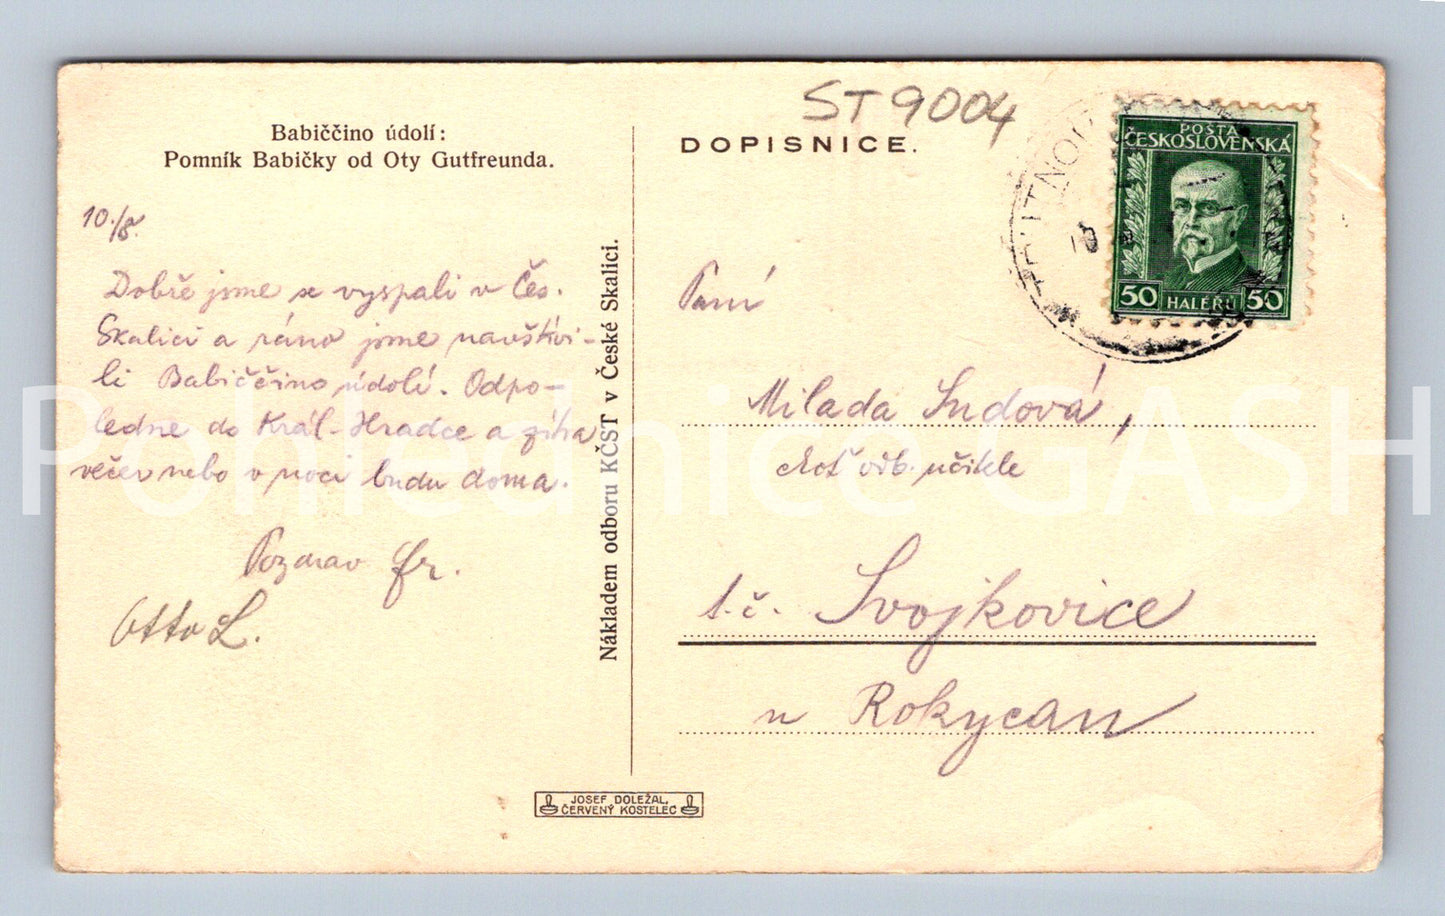 Babiččino údolí:
Pomník Babičky od Oty Gutfreunda.
10./8.
Dobře jsme se vyspali v Čes.
Skalici a ráno jsme navštívi-
li Babiččino údolí. Odpo-
ledne do Král. Hradce a zítra
večer nebo v noci budu doma.
Pozdrav Fr.
Otto L.
Nákladem odboru KČST v České Skalici.
JOSEF DOLEŽAL,
ČERVENÝ KOSTELEC
ST9004
DOPISNICE.
POŠTA
ČESKOSLOVENSKÁ
50 HALÉŘŮ 50
Paní
Milada
učitele
t. č. Svojkovice
u Rokycan
Pohlednice GASH